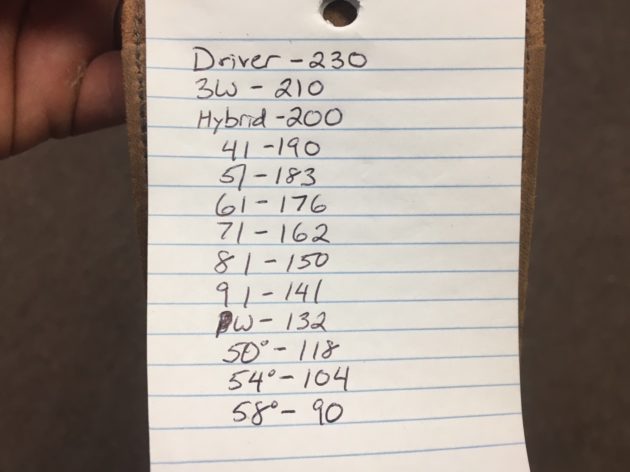 Driver - 230
3W - 210
Hybrid - 200
4I - 190
5I - 183
6I - 176
7I - 162
8I - 150
9I - 141
PW - 132
50° - 118
54° - 104
58° - 90